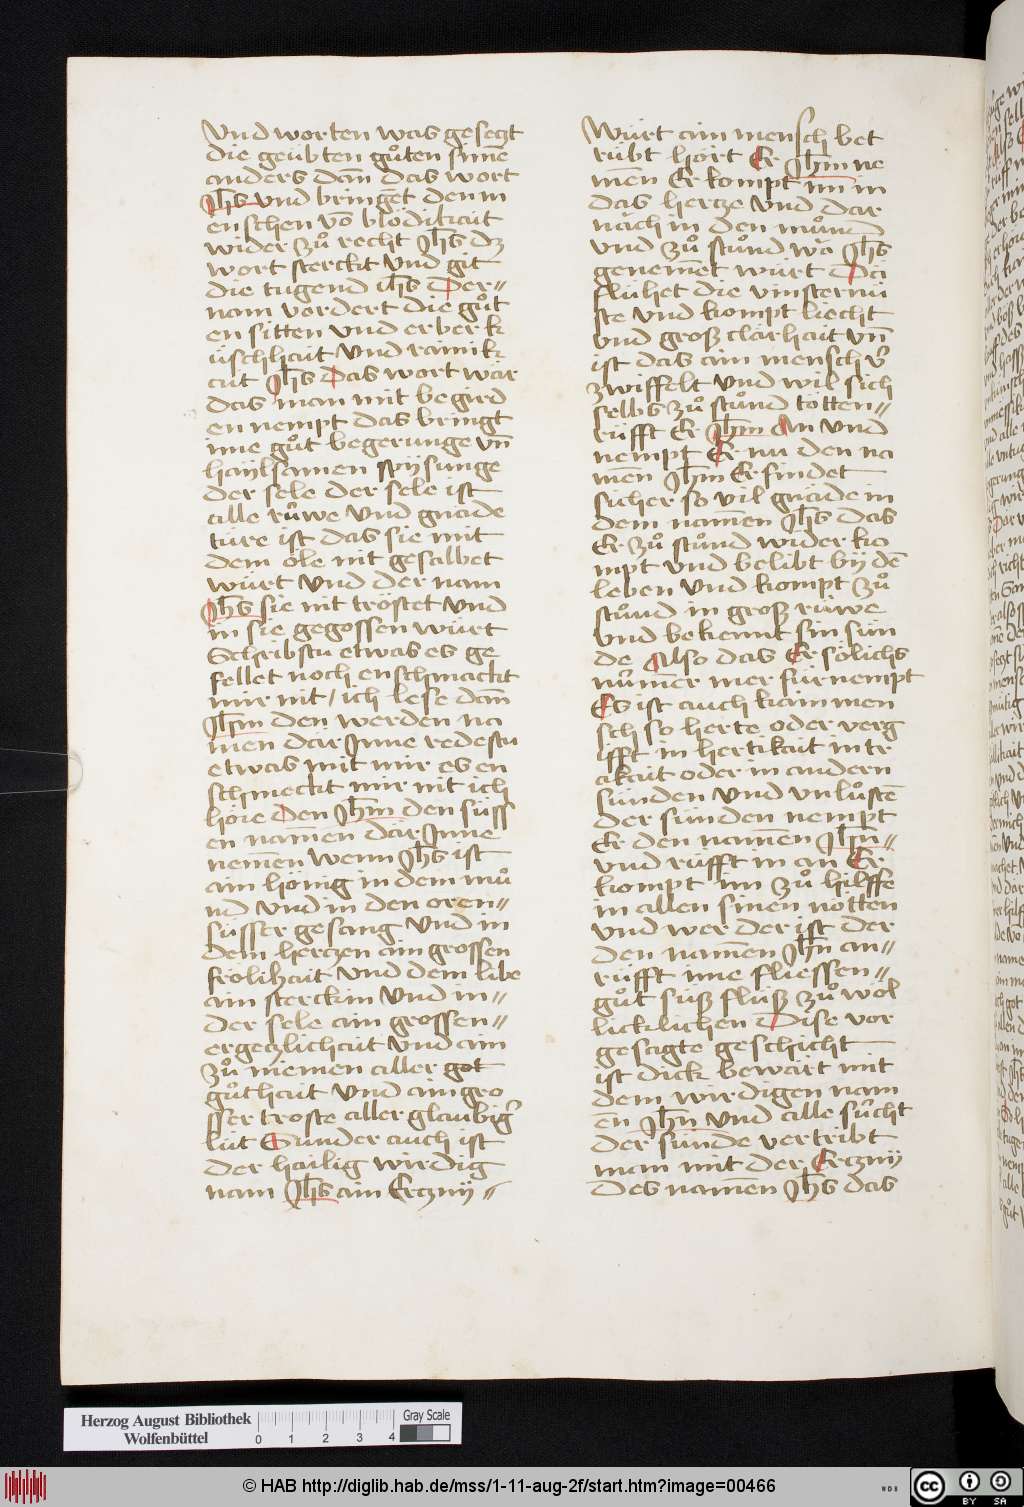 Vnd worten was gesegt
die geübten gůten sinne
anders dañ das wort
Jhs̄ vnd bringet den m
enschen vō blödikait
wider zů recht Jhs̄ dz
wort sterckt vnd git
die tugend ihs̄ Der=
nam vordert die gůt
en sitten vnd erber k
üschhait vnd rainik
ait Jhs̄ Das wort wär
das man mit begird
en nempt das bringt
ime gůt begerunge vn̄
haÿlsamen spÿsunge
der sele der sele ist
alle růwe vnd gnäde
türe ist das sie mit
dem öle nit gesalbet
würt vnd der nam
Jhs̄ sie nit tröstet vnd
in sie gegossen würt
Schribstu etwas es ge
fellet noch enschmackt
mir nit / ich lese dañ
Jhm̄ den werden na
men där Jnne redestu
etwas mit mir es en
schmeckt mir nit ich
höre Den Jhm̄ den süss
en namen där Jnne
nemen wenn Jhs̄ ist
ain hönig in dem mů
nd vnd in den oren=
süsser gesang vnd in
dem hertzen ain grossen
frölihait vnd dem libe
ain sterckin vnd in=
der sele ain grossen=
ergetzlichait vnd ain
zů niemen aller got
gůthait vnd ain gro
sser troste aller glaubig͛
lüt Sunder auch ist
der hailig wirdig
nam Jhs̄ ain Ertznÿ=
Würt ain mensch bet
rübt hört Er Jhm̄ ne
men Er kompt im in
das hertze vnd dar
näch in den můnd
vnd zů stůnd wā Jhs̄
genemet würt Da
flühet die vinsternü
ste vnd kompt liecht
vnd groß clarhait vn̄
ist das ain mensch v͛
zwiffelt vnd wil sich
selbs zů stůnd tötten=
rüfft Er Jhm̄ An vnd
nempt Er nu den na
men Jhm̄ Er findet
sicher so vil gnäde in
dem namen Jhs̄ das
Er zů stůnd wider ko
mpt vnd belibt bÿ dē
leben vnd kompt zů
stůnd in groß rüwe
vnd bekennt sin sün
de Also das Er sölichs
nůmer mer für nempt
Es ist auch kain men
sch so herte oder verg
ifft in hertikait in tr
akait oder in andern
sünden vnd vnlůstē
der sünden nempt
Er den namen Jhn̄=
vnd rüfft in an Er
kompt im zů hilffe
in allen sinen nötten
vnd wer der ist der
den namen Jhn̄ an=
rüfft ime fliessen=
gůt süß flüß zů wol
licklichen Dise vor
gesagte geschicht
ist dick bewärt mit
dem wirdigen nam
en Jhn̄ vnd alle sůcht
der sünde vertribt
man mit der Ertznÿ
Des namen Jhs̄ das
Herzog August Bibliothek
Wolfenbüttel
0 1 2 3 4
Gray Scale
© HAB http://diglib.hab.de/mss/1-11-aug-2f/start.htm?image=00466
WDB
cc BY SA